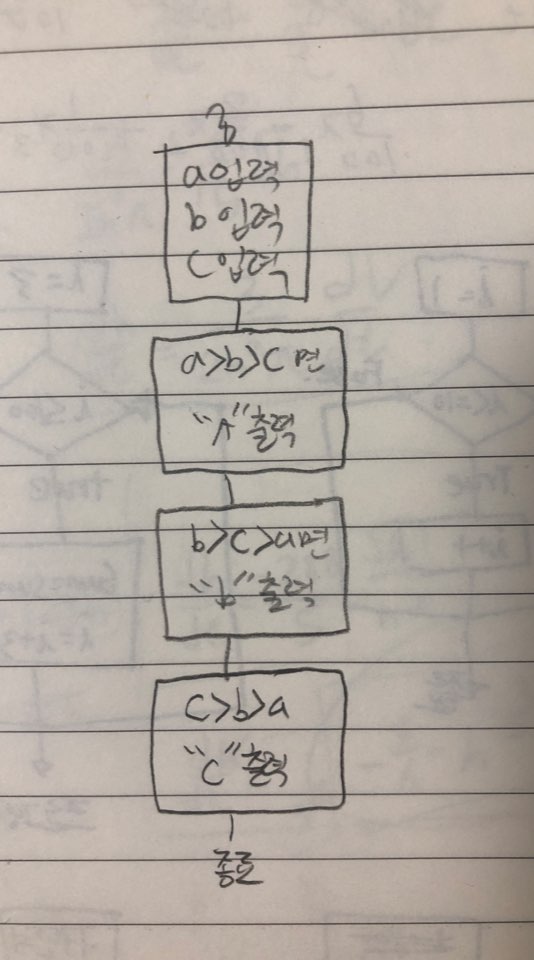 a 입력
b 입력
c 입력
a>b>c 면
"A" 출력
b>c>a면
"b" 출력
c>b>a
"C" 출력
종료